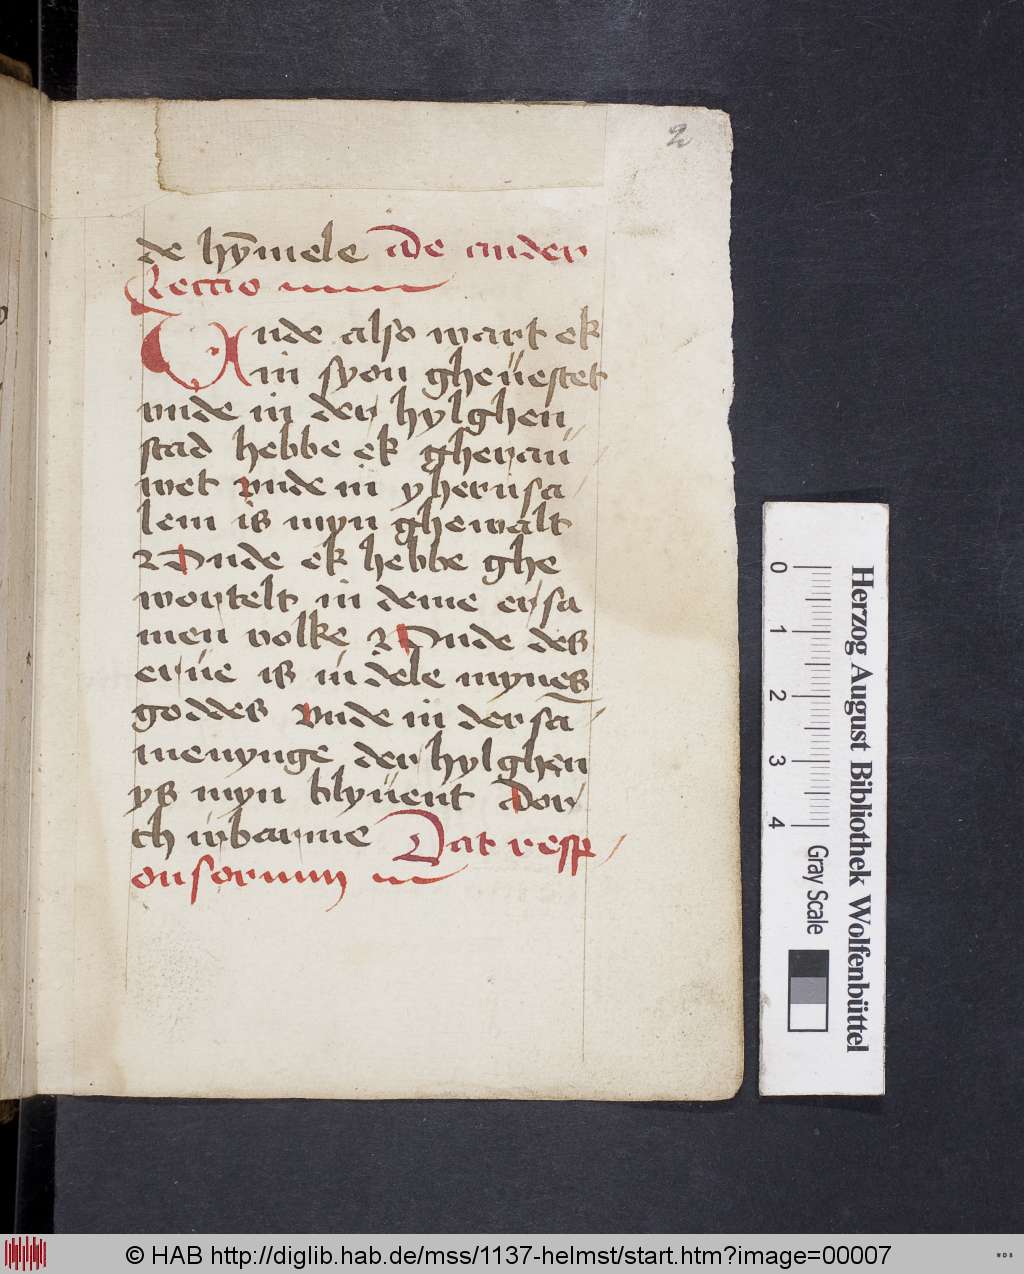 2
de hȳmele De ander
Lectio
Unde also wart ek
in syon gheůestet
vnde in der hylghen
stad hebbe ek gherau
wet vnde in yherusa
lem is myn ghewalt
Unde ek hebbe ghe
wortelt in deme ersa
men volke Unde des
erue is in dele mynes
goddes vnde in der sā
menynge der hylghen
ys myn blyuent Dor
ch irbarme Dat resp
onsorium
0 1 2 3 4
Gray Scale
Herzog August Bibliothek Wolfenbüttel
© HAB http://diglib.hab.de/mss/1137-helmst/start.htm?image=00007